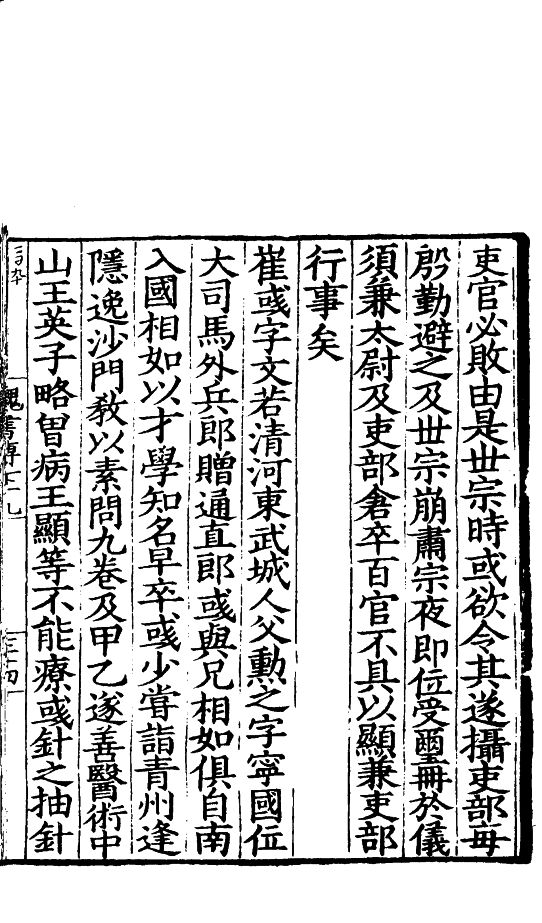 吏官必敗由是世宗時或欲令其遂攝吏部每
殷勤避之及世宗崩肅宗夜即位受璽冊於儀
須兼太尉及吏部倉卒百官不具以顯兼吏部
行事矣
崔彧字文若清河東武城人父勳之字寧國位
大司馬外兵郎贈通直郎彧與兄相如俱自南
入國相如以才學知名早卒彧少嘗詣青州逢
隱逸沙門教以素問九卷及甲乙遂善醫術中
山王英子略曾病王顯等不能療彧針之抽針
魏書傳七十九
三十四